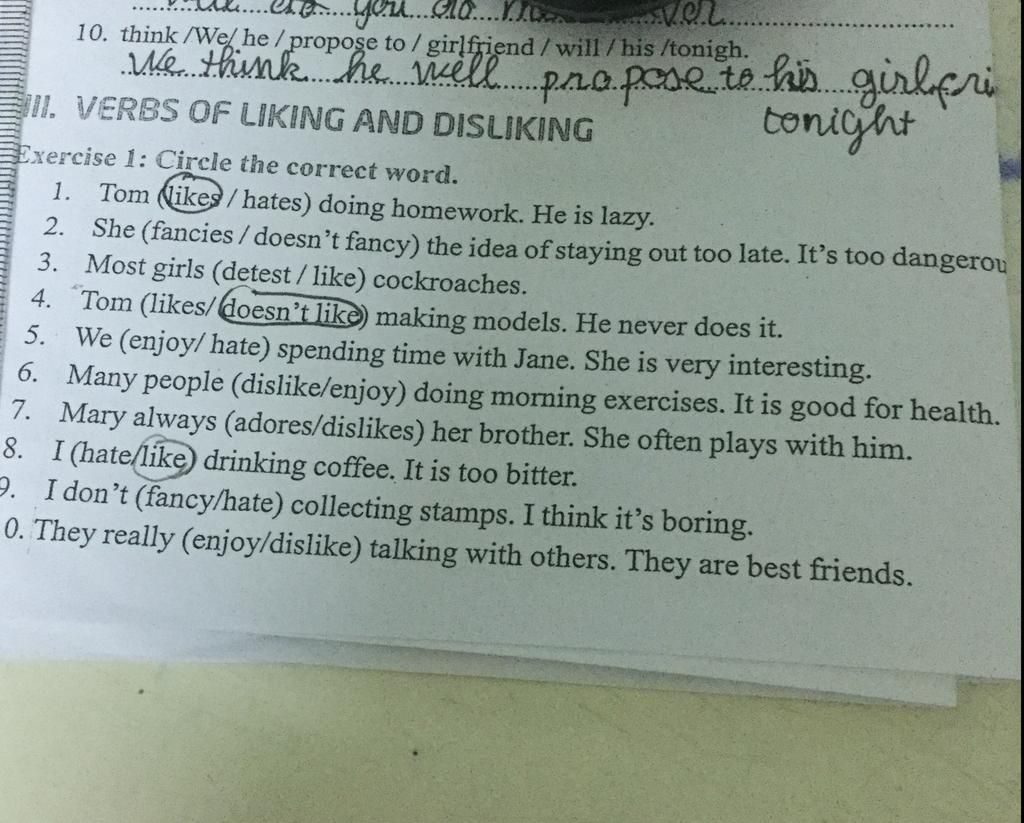 you do
10. think /We/ he / propose to / girlfriend / will / his /tonigh.
We think he will propose to his girlfri
tonight
III. VERBS OF LIKING AND DISLIKING
Exercise 1: Circle the correct word.
1. Tom (likes / hates) doing homework. He is lazy.
2. She (fancies / doesn't fancy) the idea of staying out too late. It's too dangerou
3. Most girls (detest / like) cockroaches.
4. Tom (likes/ doesn't like) making models. He never does it.
5. We (enjoy/ hate) spending time with Jane. She is very interesting.
6. Many people (dislike/enjoy) doing morning exercises. It is good for health.
7. Mary always (adores/dislikes) her brother. She often plays with him.
8. I (hate/like) drinking coffee. It is too bitter.
9. I don't (fancy/hate) collecting stamps. I think it's boring.
0. They really (enjoy/dislike) talking with others. They are best friends.